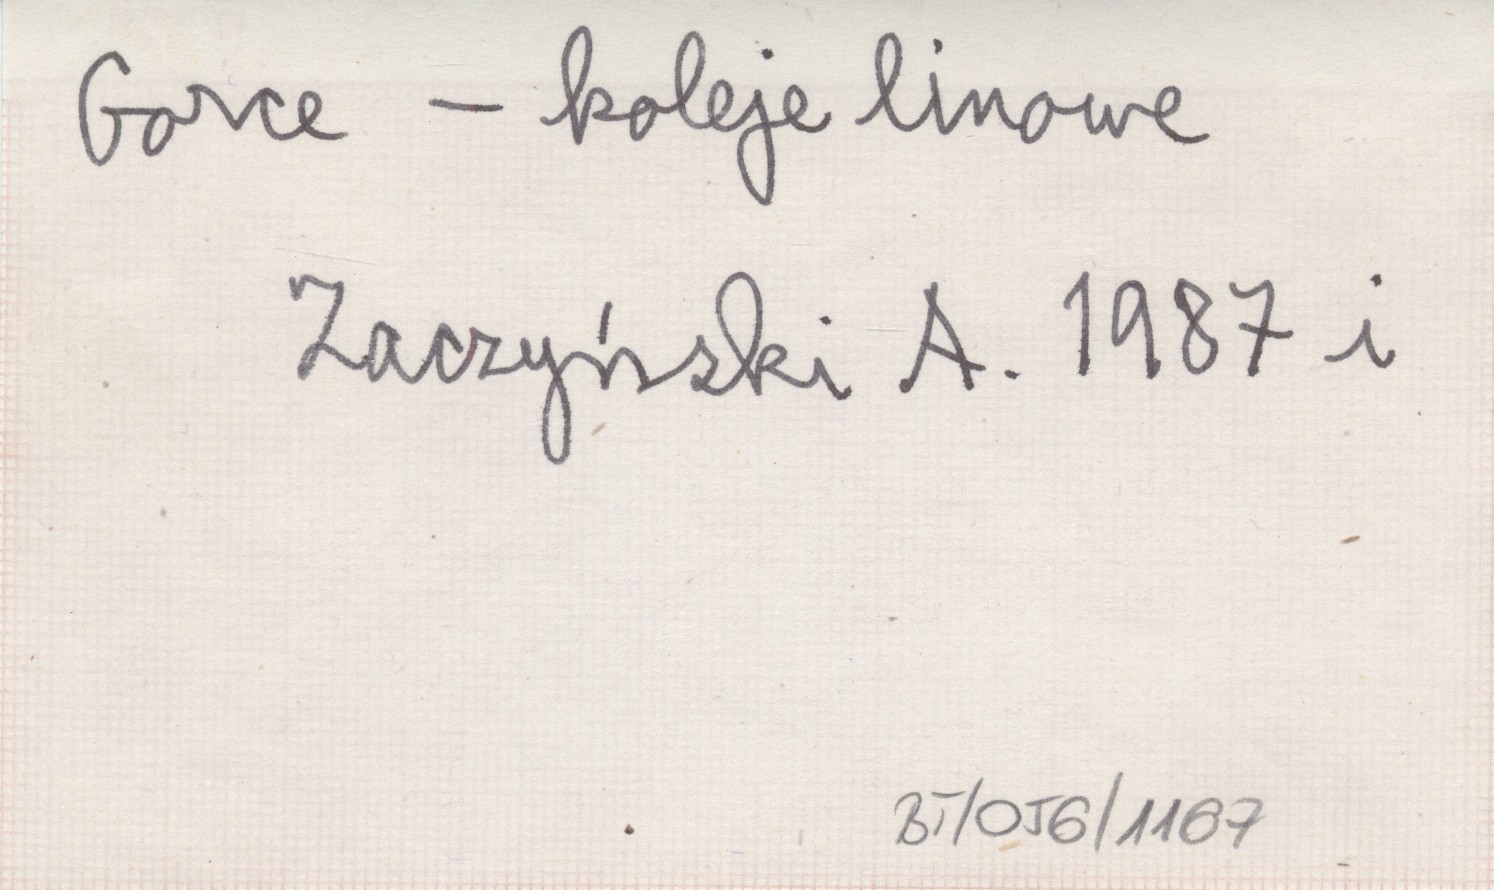 Gorce – koleje linowe
Zaczyński A. 1987 i
BT/OJG/1167